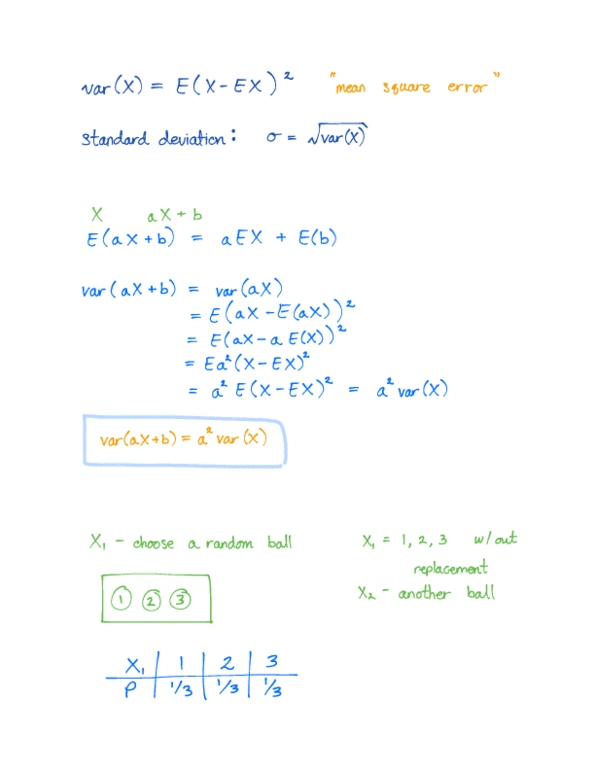 var(X) = E(X-EX)² "mean square error"
standard deviation: σ = √var(X)
X aX + b
E(aX+b) = aEX + E(b)
var(aX+b) = var(aX)
= E(aX-E(aX))²
= E(aX-aE(X))²
= Ea²(X-EX)²
= a² E(X-EX)² = a² var(X)
var(aX+b) = a² var(X)
X₁ - choose a random ball
X₁ = 1, 2, 3 w/out
replacement
X₂ - another ball
1 2 3
X₁ 1 2 3
P 1/3 1/3 1/3